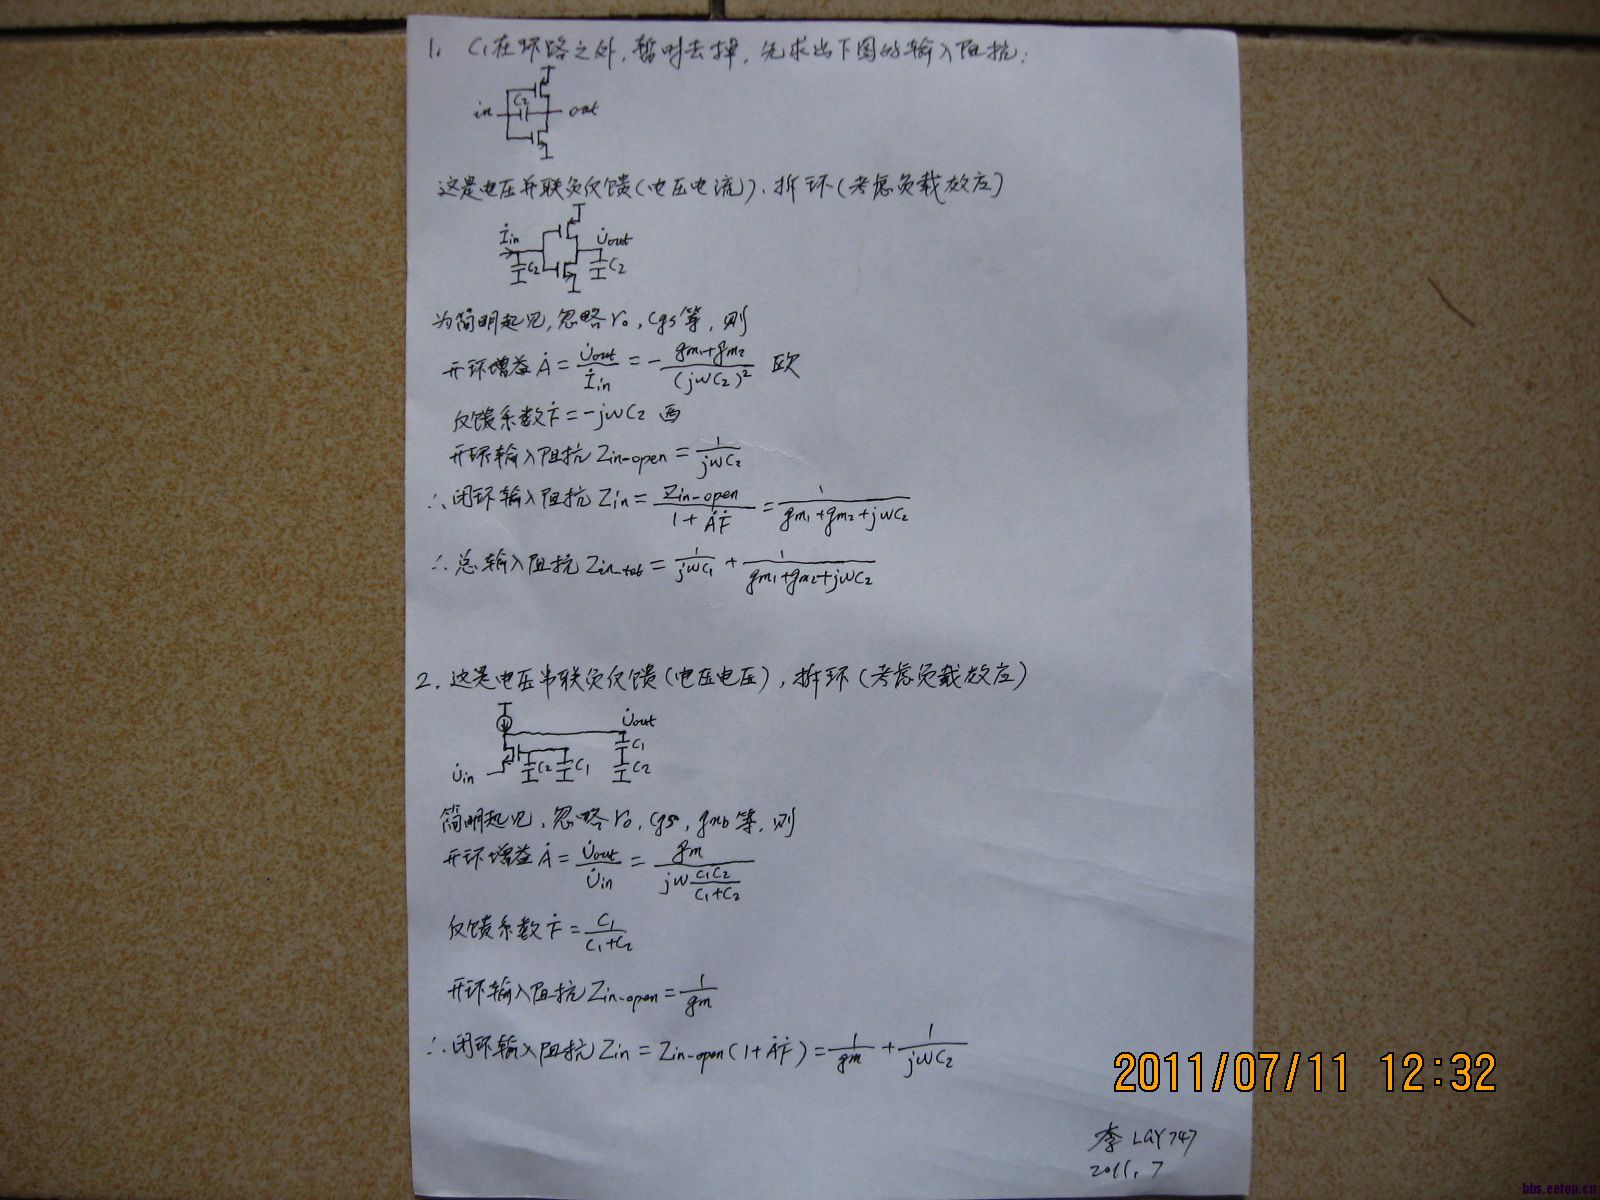 1. C₁在环路之外,暂时去掉,先求出下图的输入阻抗:
in C₂ out
这是电压并联负反馈(电压电流),拆环(考虑负载效应)
İin C₂ U̇out C₂
为简明起见,忽略ro,cgs等,则
开环增益Ȧ = U̇out/İin = -(gm₁+gm₂)/(jωC₂)² 欧
反馈系数Ḟ = -jωC₂ 西
开环输入阻抗Zin-open = 1/(jωC₂)
∴闭环输入阻抗Zin = Zin-open/(1+ȦḞ) = 1/(gm₁+gm₂+jωC₂)
∴总输入阻抗Zin_tot = 1/(jωC₁) + 1/(gm₁+gm₂+jωC₂)
2. 这是电压串联负反馈(电压电压),拆环(考虑负载效应)
U̇out
C₁
U̇in C₂ C₁ C₂
简明起见,忽略ro,cgs,gmb等,则
开环增益Ȧ = U̇out/U̇in = gm/(jω C₁C₂/(C₁+C₂))
反馈系数Ḟ = C₁/(C₁+C₂)
开环输入阻抗Zin-open = 1/gm
∴闭环输入阻抗Zin = Zin-open(1+ȦḞ) = 1/gm + 1/(jωC₂)
2011/07/11 12:32
李 LGY747
2011.7
bbs.eetop.cn